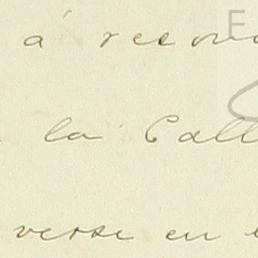 á resolv
la Call
verse en